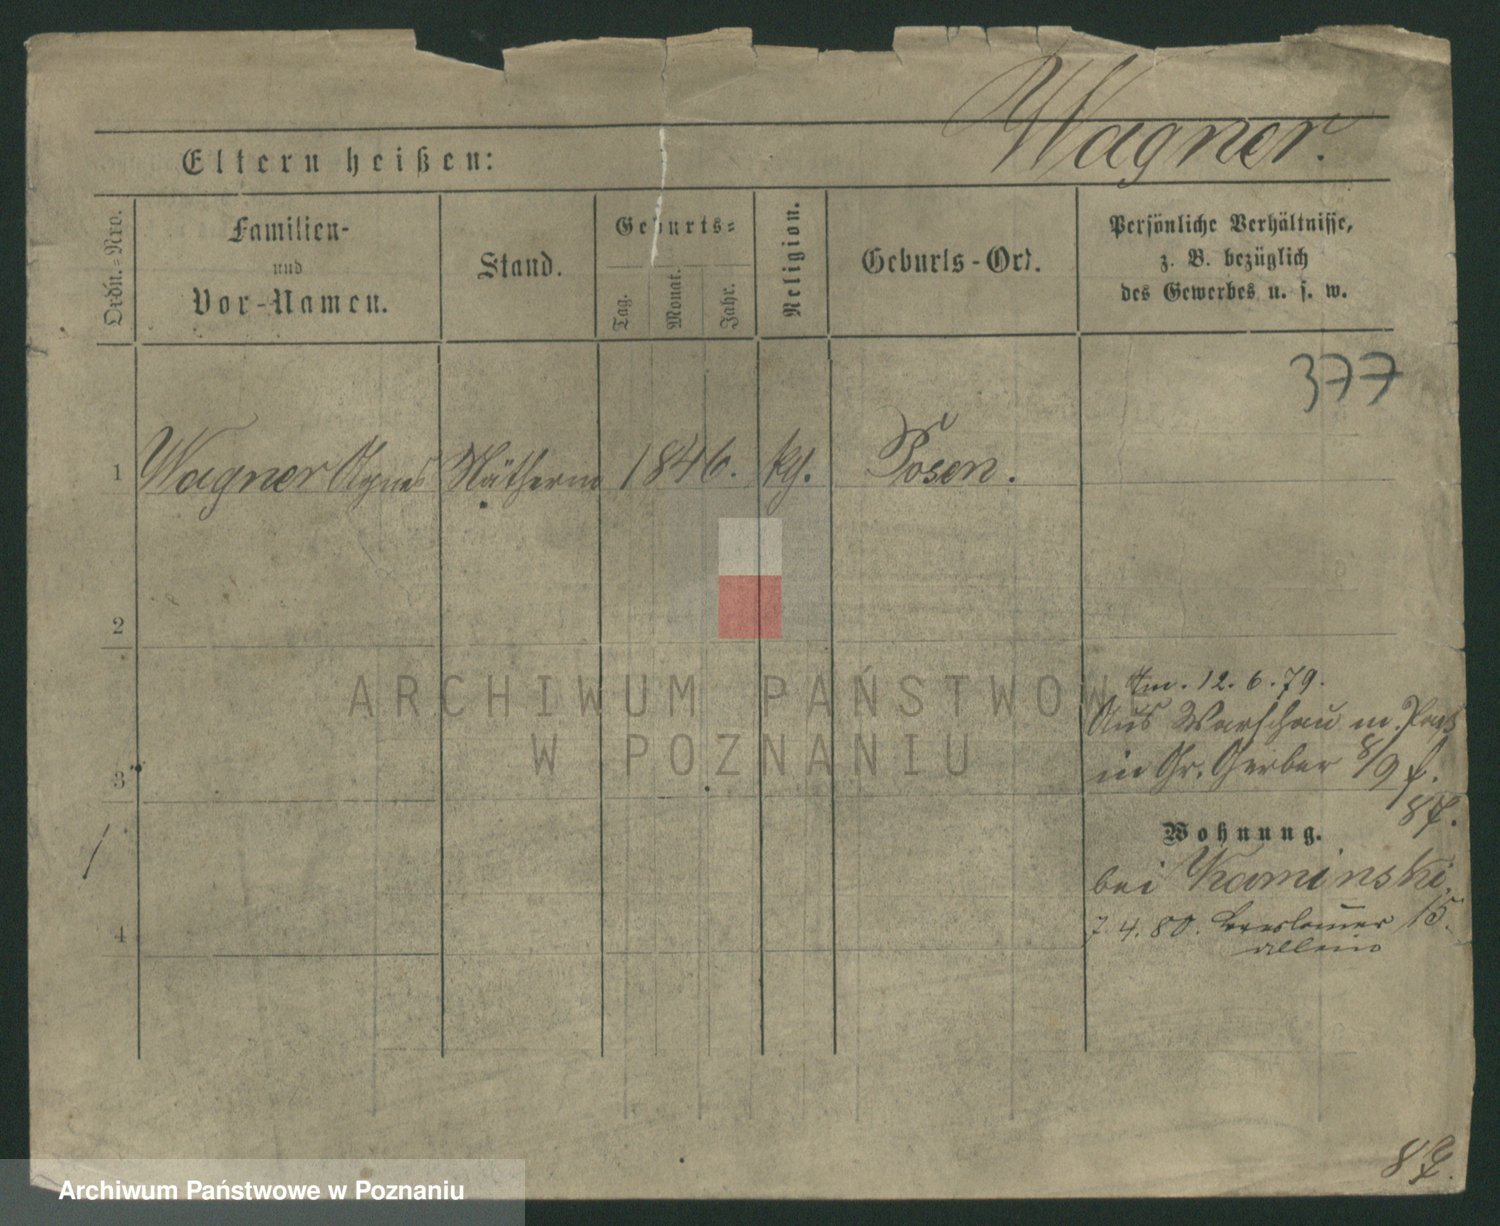 Wagner.
Eltern heißen:
Ordn.=Nro.
Familien-
und
Vor-Namen.
Stand.
Geburts=
Tag.
Monat.
Jahr.
Religion.
Geburts-Ort.
Persönliche Verhältnisse,
z. B. bezüglich
des Gewerbes u. s. w.
377
1 Wagner Agnes Nätherin 1846. kg. Posen.
2
Am. 12.6.79.
Aus Warschau m.
in Gr. Gerber 8/9
3
87.
Wohnung.
bei Kaminski
7.4.80. Breslauer 15.
allein
4
87.
ARCHIWUM PAŃSTWOWE
W POZNANIU
Archiwum Państwowe w Poznaniu